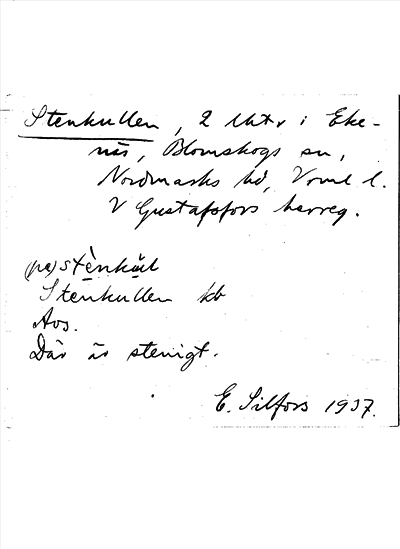 Stenkullen, 2 lhtr i Eke-
näs, Blomskogs sn,
Nordmarks hd, Vrml l.
V Gustafsfors herreg.
(pe) stènkúl
Stenkullen kb
Avs.
Där är stenigt.
E. Silfors 1937.